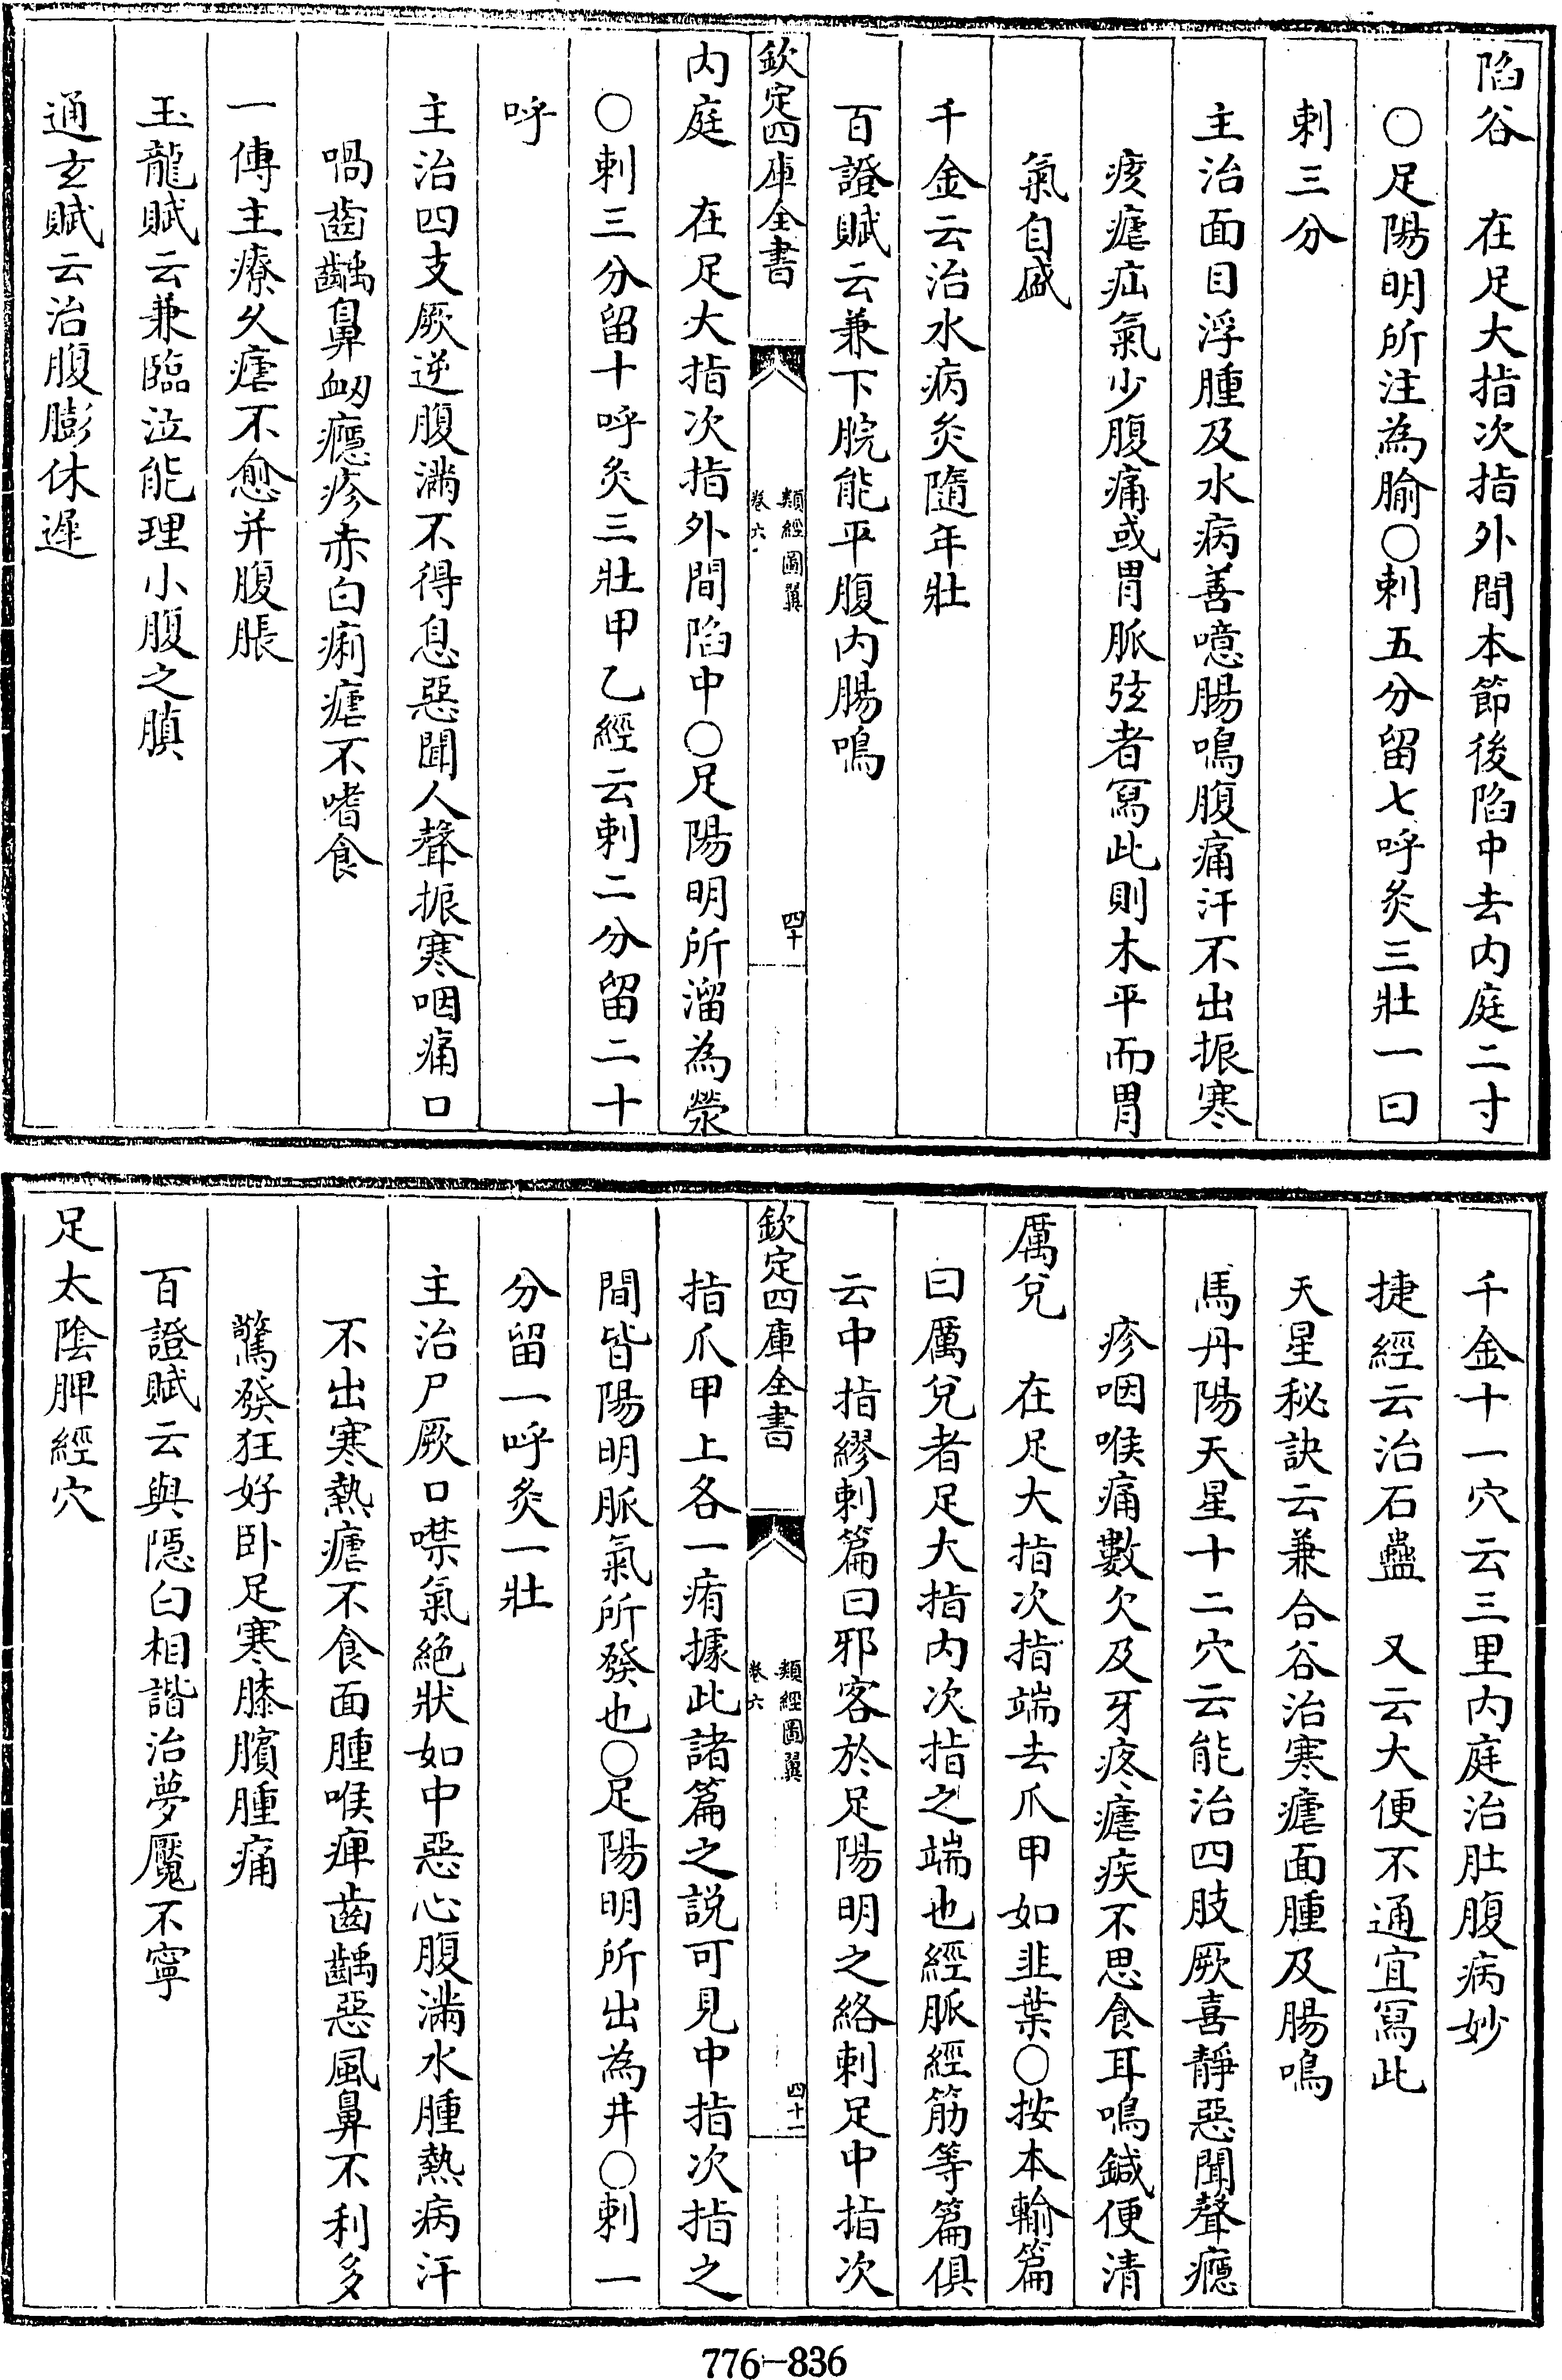 陷谷　在足大指次指外間本節後陷中去内庭二寸
○足陽明所注為腧○刺五分留七呼灸三壯一曰
刺三分
主治面目浮腫及水病善噫腸鳴腹痛汗不出振寒
痎瘧疝氣少腹痛或胃脈弦者寫此則木平而胃
氣自盛
千金云治水病灸隨年壯
百證賦云兼下脘能平腹内腸鳴
欽定四庫全書
類經圖翼
卷六
四十
内庭　在足大指次指外間陷中○足陽明所溜為滎
○刺三分留十呼灸三壯甲乙經云刺二分留二十
呼
主治四支厥逆腹滿不得息惡聞人聲振寒咽痛口
喎齒齲鼻衂癮疹赤白痢瘧不嗜食
一傳主療久瘧不愈并腹脹
玉龍賦云兼臨泣能理小腹之䐜
通玄賦云治腹膨休遲
千金十一穴云三里内庭治肚腹病妙
捷經云治石蠱　又云大便不通宜寫此
天星秘訣云兼合谷治寒瘧面腫及腸鳴
馬丹陽天星十二穴云能治四肢厥喜靜惡聞聲癮
疹咽喉痛數欠及牙疼瘧疾不思食耳鳴鍼便清
厲兌　在足大指次指端去爪甲如韭葉○按本輸篇
曰厲兌者足大指内次指之端也經脈經筋等篇俱
云中指繆刺篇曰邪客於足陽明之絡刺足中指次
欽定四庫全書
類經圖翼
卷六
四十一
指爪甲上各一痏據此諸篇之說可見中指次指之
間皆陽明脈氣所發也○足陽明所出為井○刺一
分留一呼灸一壯
主治尸厥口噤氣絶狀如中惡心腹滿水腫熱病汗
不出寒熱瘧不食面腫喉痺齒齲惡風鼻不利多
驚發狂好卧足寒膝臏腫痛
百證賦云與隱白相諧治夢魘不寧
足太陰脾經穴
776-836